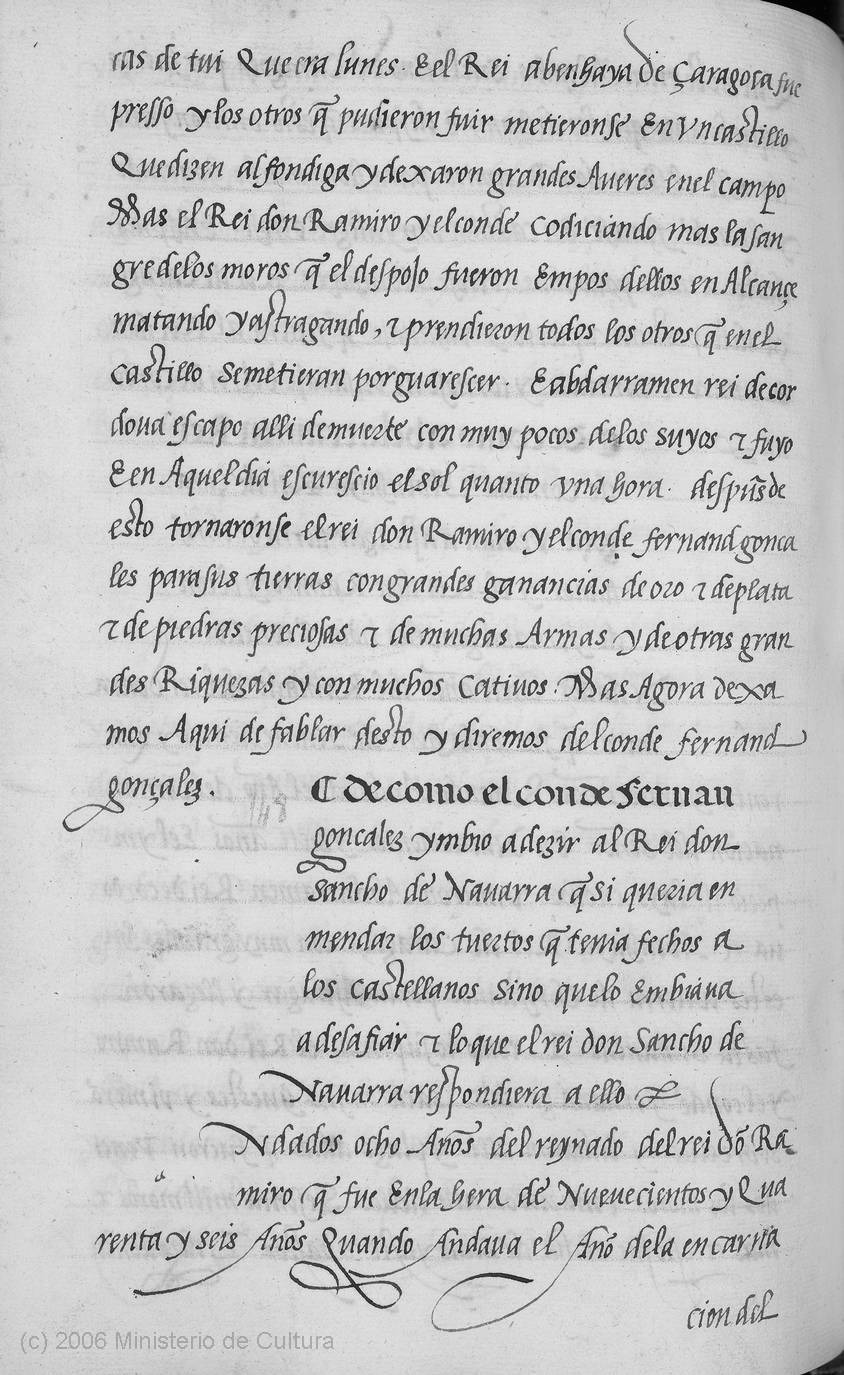 cas de tui Que era lunes. E el Rei abenhaya de Çaragoça fue
presso y los otros q̄ pudieron fuir metieronse En Vn castillo
Que dizen alfondiga y dexaron grandes Averes en el campo
Mas el Rei don Ramiro y el conde codiciando mas la san
gre de los moros q̄ el despojo fueron Empos dellos en Alcançe
matando y astragando, & prendieron todos los otros q̄ en el
castillo se metieran por guarescer. E abdarramen rei de cor
doua escapo alli de muerte con muy pocos de los suyos & fuyo
E en Aquel dia escurescio el sol quanto vna hora. despũs de
esto tornaronse el rei don Ramiro y el conde fernand gonca
les para sus tierras con grandes ganancias de oro & de plata
& de piedras preciosas & de muchas Armas y de otras gran
des Riquezas y con muchos Cativos. Mas Agora dexa
mos Aqui de fablar desto y diremos del conde fernand
gonçalez.
148
C de como el conde Fernan
goncalez ymbio a dezir al Rei don
Sancho de Navarra q̄ si queria en
mendar los tuertos q̄ tenia fechos a
los castellanos sino que lo Embiava
a desafiar & lo que el rei don Sancho de
Navarra respondiera a ello
Ndados ocho Años del reynado del rei dō Ra
miro q̄ fue En la hera de Nuevecientos y Qua
renta y seis Años Quando Andava el Año de la encarna
cion del
(c) 2006 Ministerio de Cultura